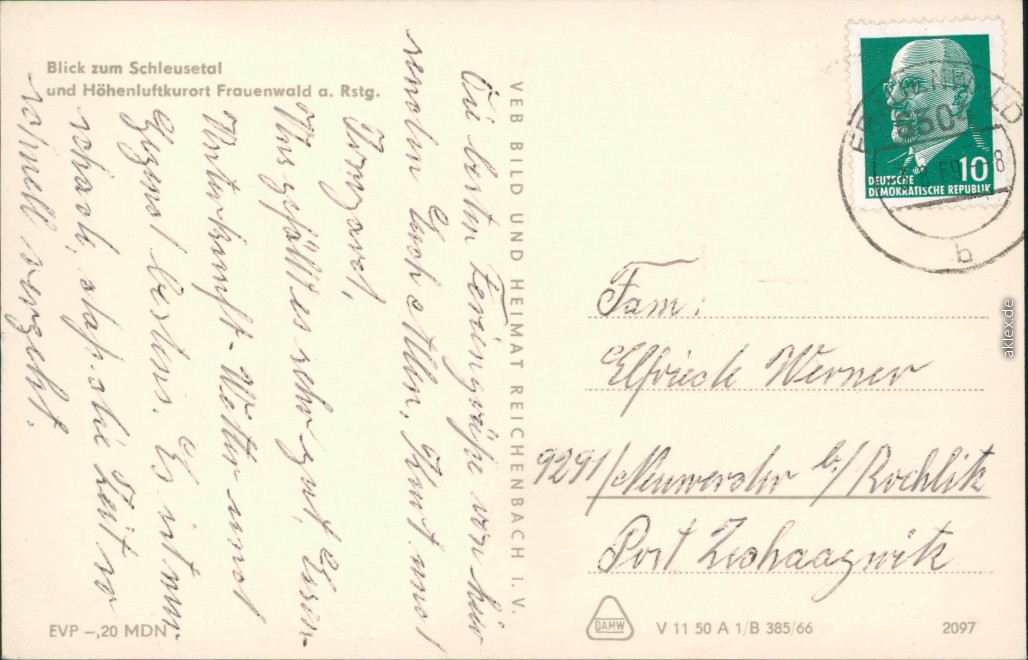 Blick zum Schleusetal
und Höhenluftkurort Frauenwald a. Rstg.
Die besten Feriengrüße von hier
senden Euch allen, Knut und
Irmgard,
Uns gefällt es sehr gut, Essen-
Unterkunft - Wetter und
Gegend bestens. Es ist nur
schade, daß die Zeit so
schnell vergeht.
VEB BILD UND HEIMAT REICHENBACH I. V.
DEUTSCHE
DEMOKRATISCHE REPUBLIK
10
b
Fam:
Elfriede Werner
9291/Neuwerder b/Rochlitz
Post Zschaagwitz
EVP –,20 MDN
DAMW
V 11 50 A 1/B 385/66
2097
aklex.de